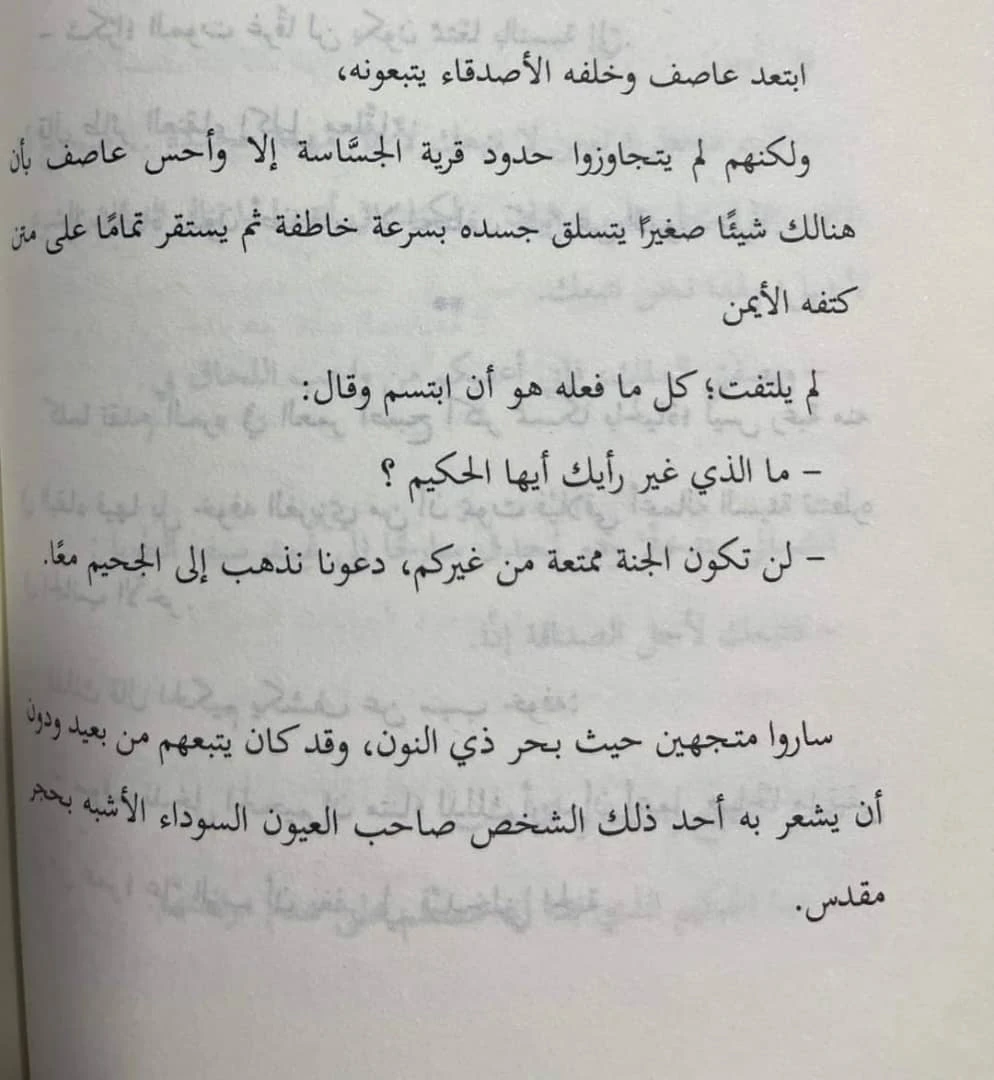 ابتعد عاصف وخلفه الأصدقاء يتبعونه،
ولكنهم لم يتجاوزوا حدود قرية الجسَّاسة إلا وأحس عاصف بأن
هنالك شيئًا صغيرًا يتسلق جسده بسرعة خاطفة ثم يستقر تمامًا على متن
كتفه الأيمن
لم يلتفت؛ كل ما فعله هو أن ابتسم وقال:
– ما الذي غير رأيك أيها الحكيم ؟
– لن تكون الجنة ممتعة من غيركم، دعونا نذهب إلى الجحيم معًا.
ساروا متجهين حيث بحر ذي النون، وقد كان يتبعهم من بعيد ودون
أن يشعر به أحد ذلك الشخص صاحب العيون السوداء الأشبه بحجر
مقدس.